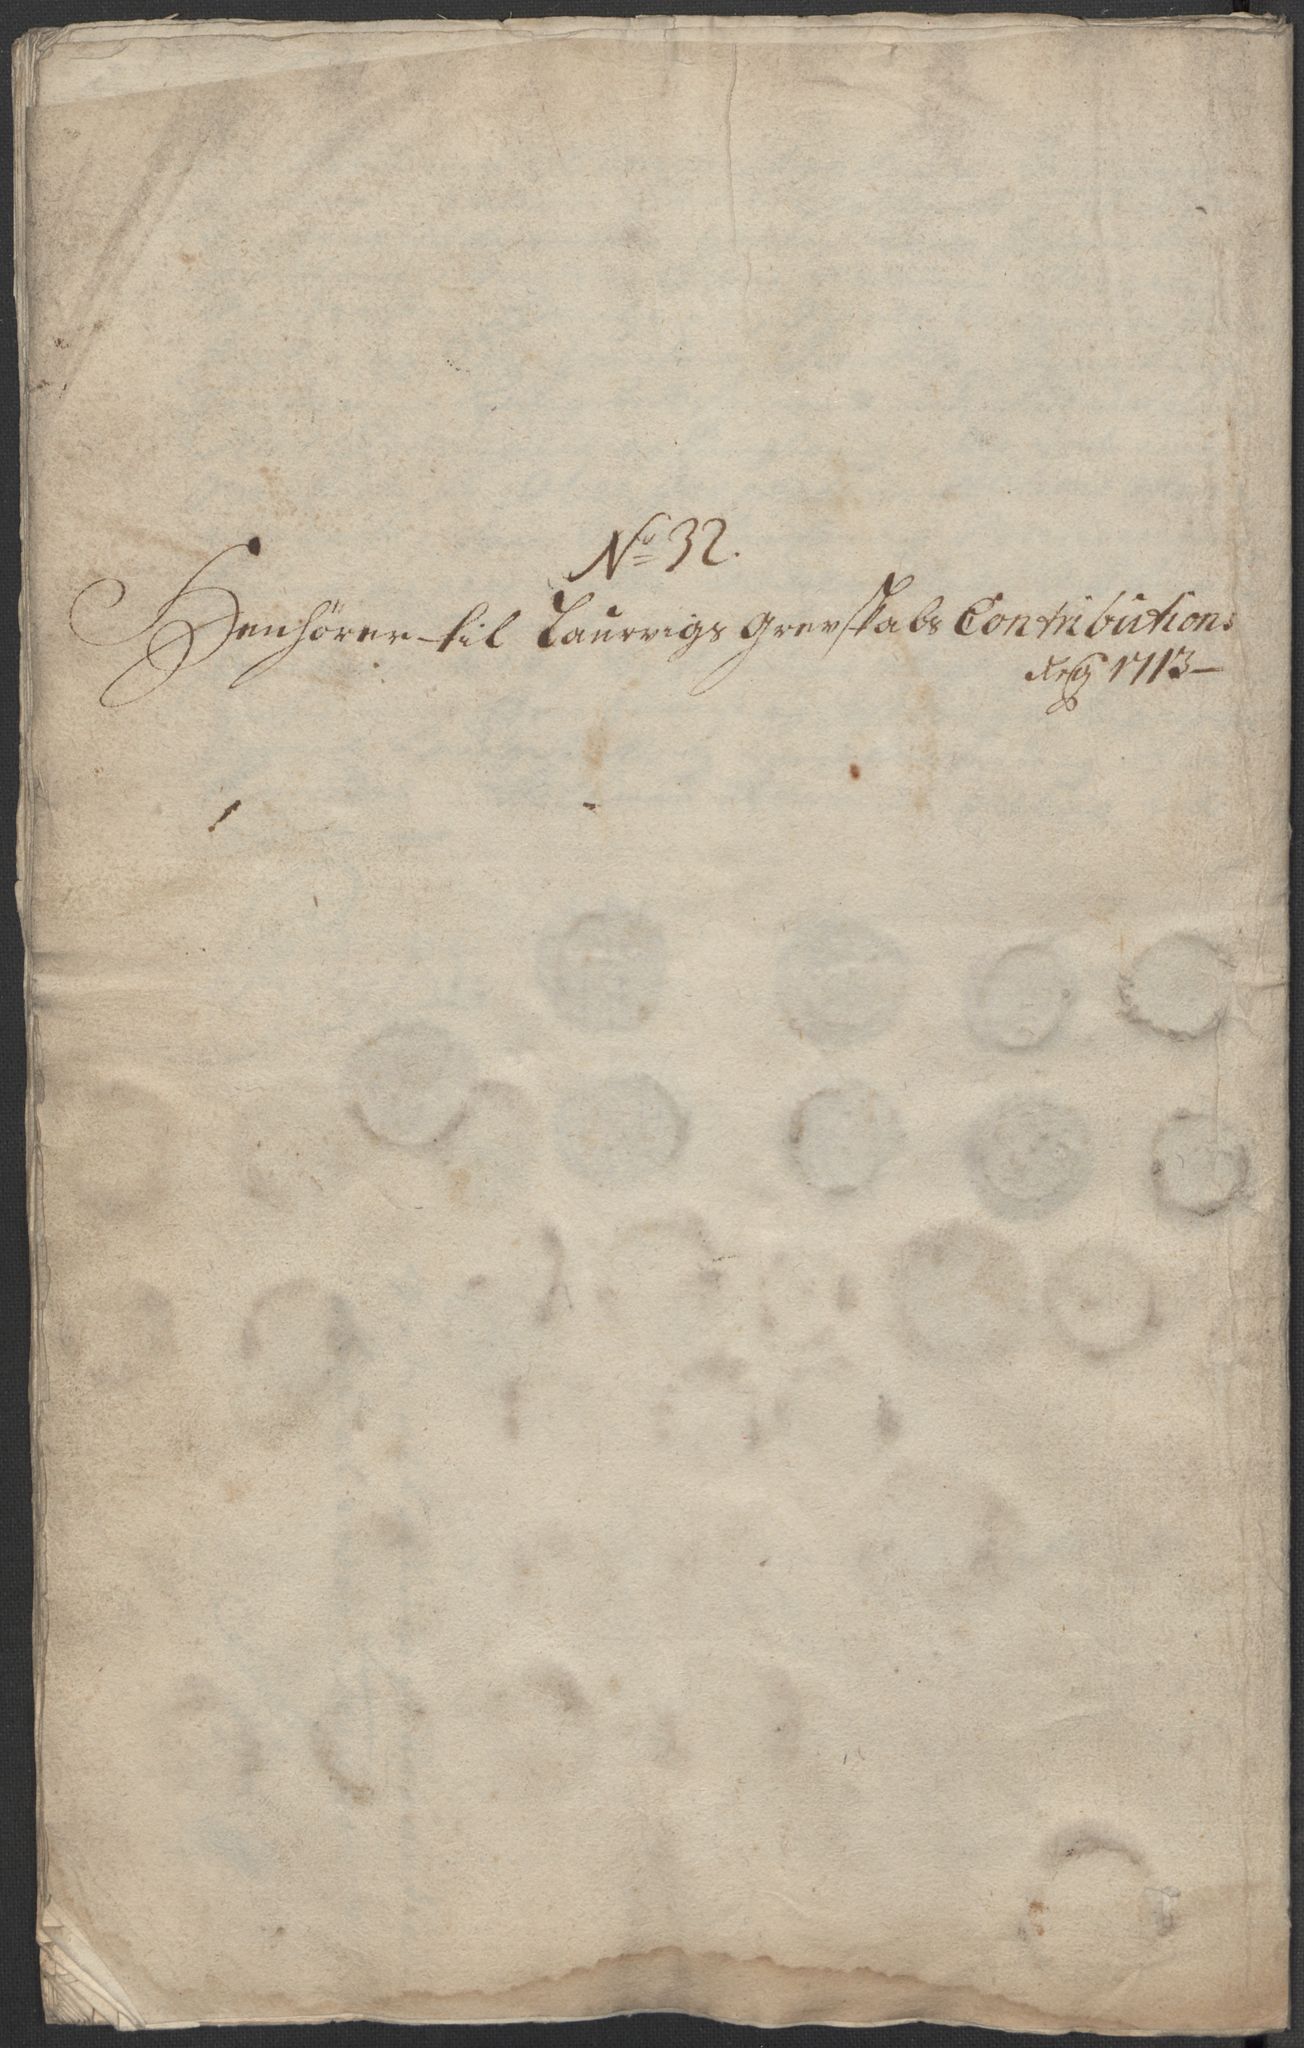 No 32.
Henhörer til Laurvigs Grevskabs Contributions
Regs 1713